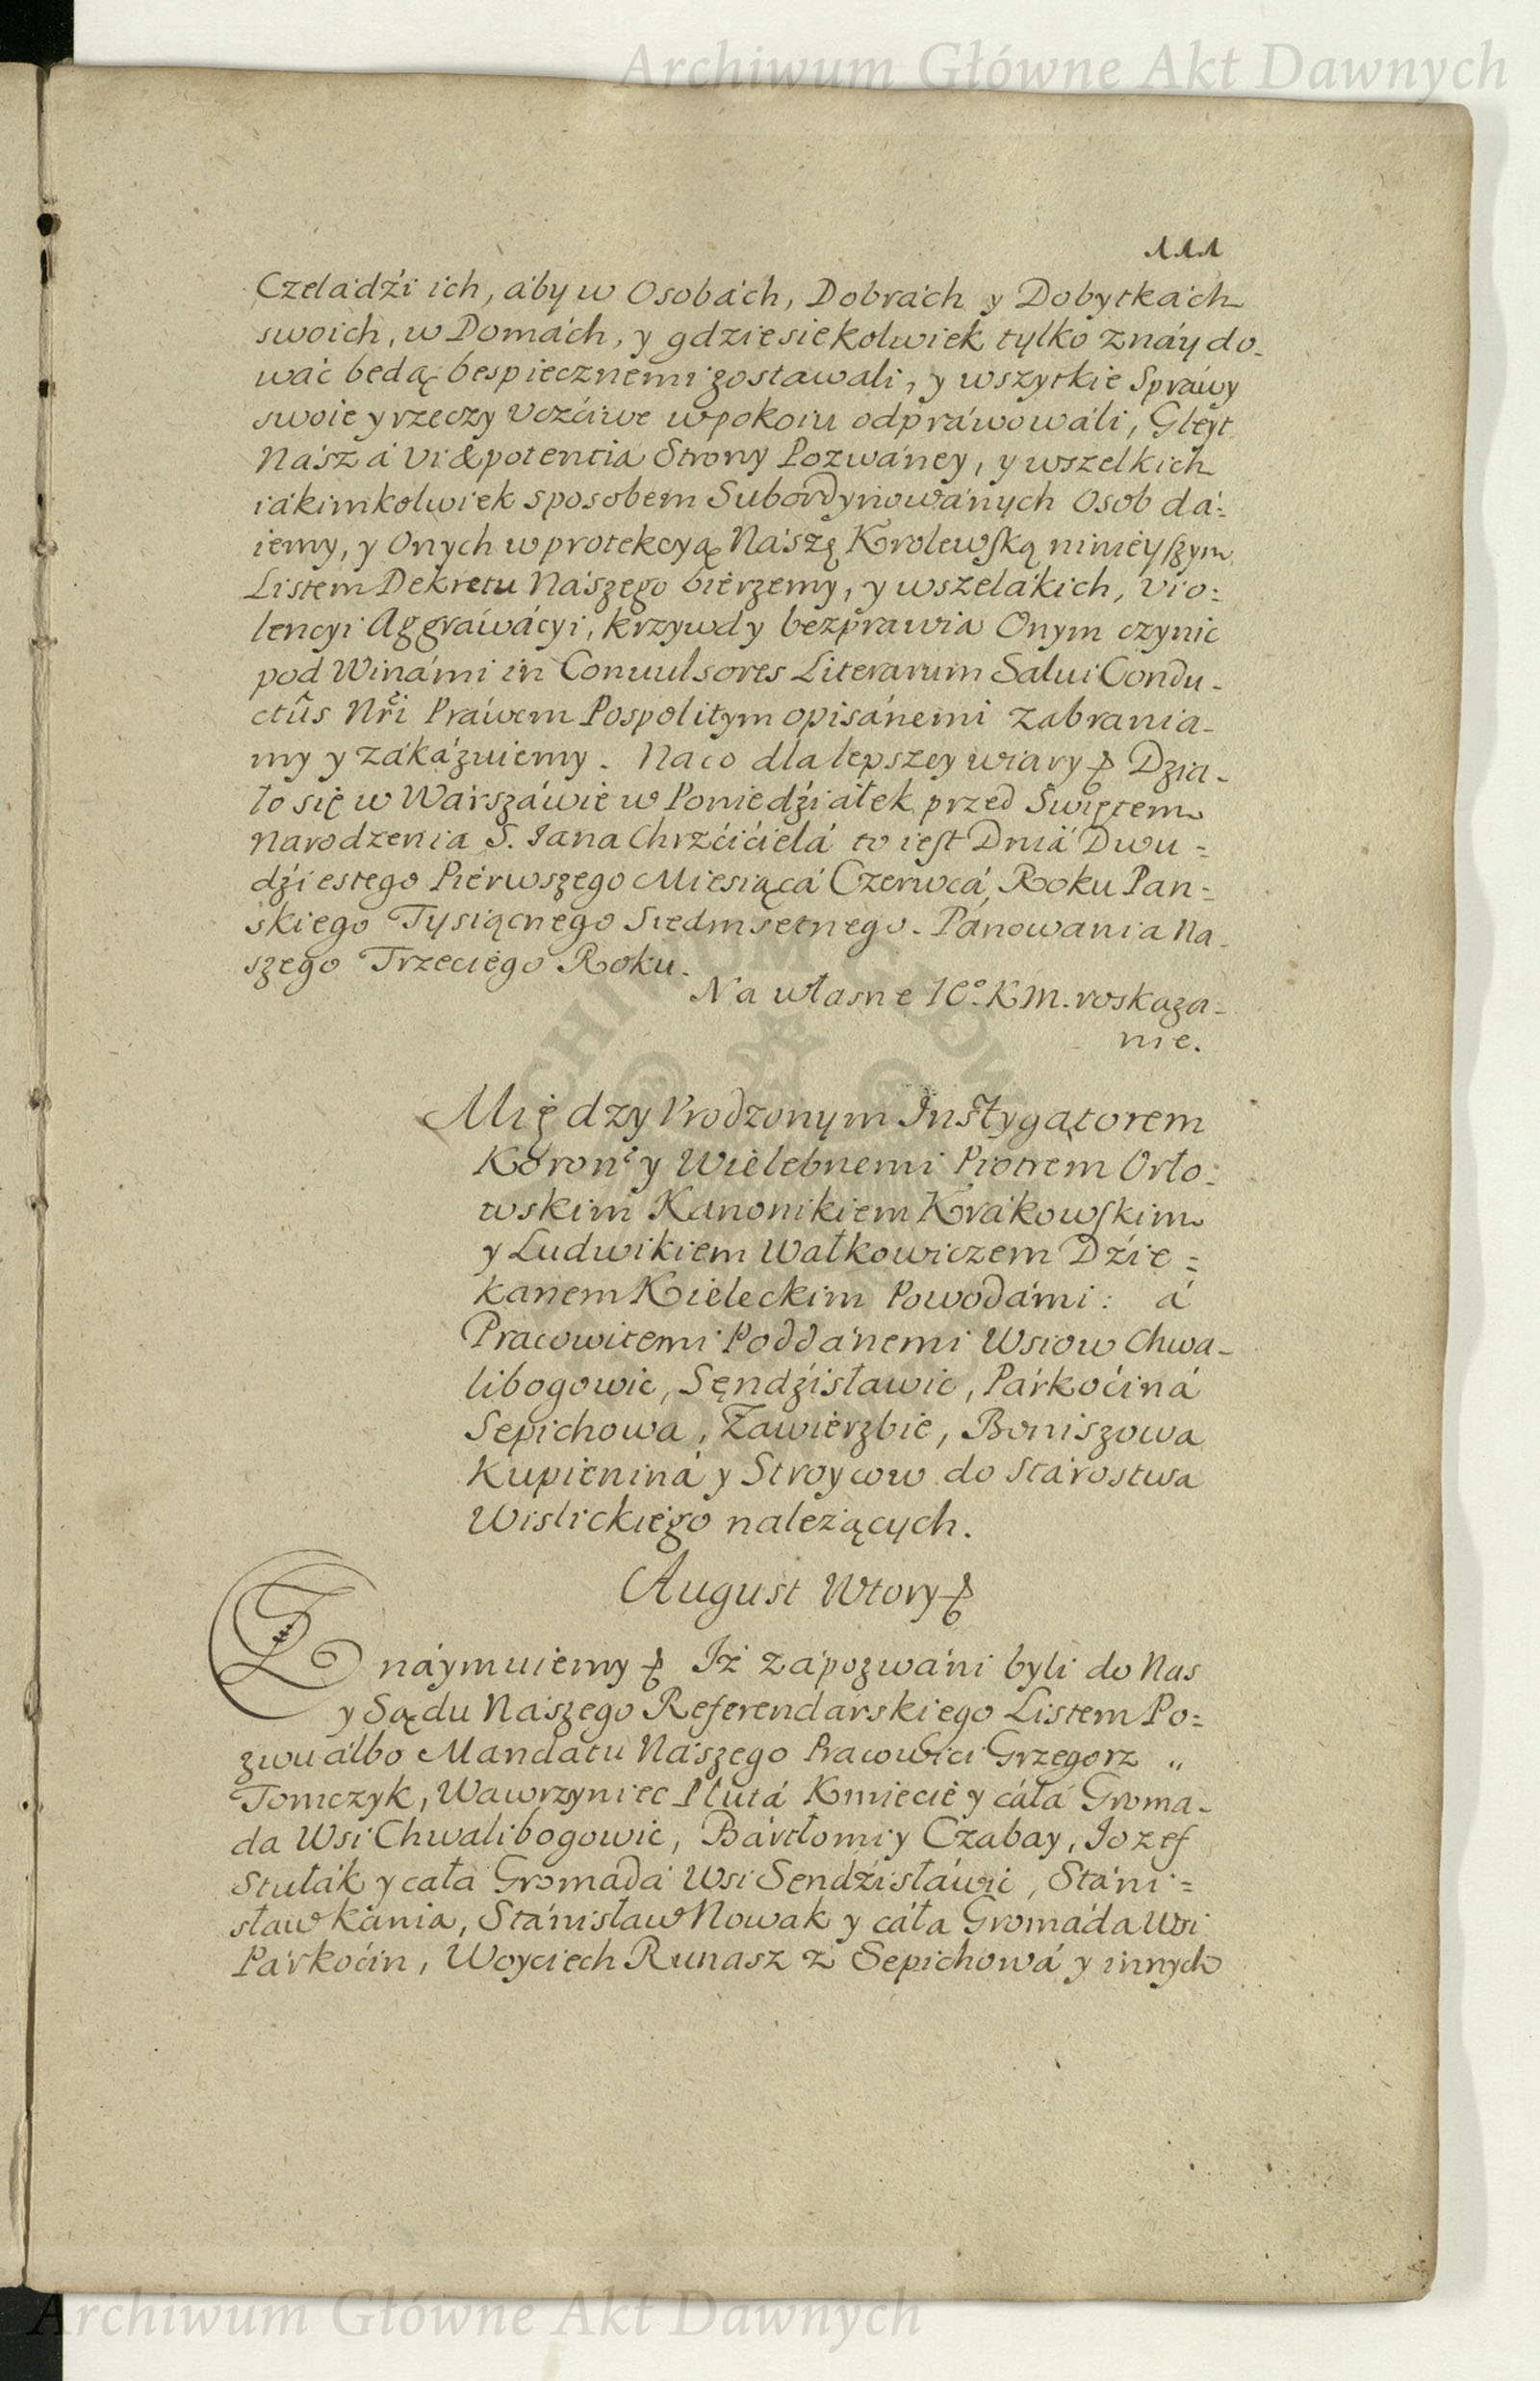 Archiwum Główne Akt Dawnych
111
Czeládźi ich, áby w Osobách, Dobrách y Dobytkách
swoich, w Domách, y gdziesiekolwiek tylko znáydo-
wáć bedą bespiecznemi zostawali, y wszytkie Spráwy
swoie y rzeczy Vczćiwe w pokoiu odpráwowáli, Gleyt
Nász á Vi & potentia Strony Pozwáney, y wszelkich
iákimkolwiek sposobem Subordynowánych Osob dá=
iemy, y Onych w protekcyą Nászę Krolewską ninieyszym
Listem Dekretu Nászego bierzemy, y wszelákich, Vio=
lencyi Aggráwácyi, krzywdy bezpráwia Onym czynic
pod Winámi in Conuulsores Literarum Salui Condu-
ctûs Nri Práwem Pospolitym opisánemi zabrania-
my y zákázuiemy. Na co dla lepszey wiary Dzia-
ło się w Wárszáwie w Poniedźiáłek przed Swiętem
Narodzenia S. Iana Chrzćićielá to iest Dniá Dwu=
dźiestego Pierwszego Miesiącá Czerwcá Roku Pan=
skiego Tysiącnego Siedmsetnego. Pánowania Na-
szego Trzeciego Roku.
Na własne IE°. K M. roskaza-
nie.
Między Vrodzonym Instygątorem
Koron: y Wielebnemi Piotrem Orło=
wskim Kanonikiem Krákowskim
y Ludwikiem Wałkowiczem Dźie=
kanem Kieleckim Powodámi: á
Pracowitemi Poddánemi Wsiow Chwa-
libogowic, Sęndźisławic, Párkoćiná
Sepichowa, Zawierzbie, Boniszowa
Kupieniná y Stroycow do Stárostwa
Wislickiego należących.
August Wtory
Znáymuiemy Iż zápozwáni byli do Nas
y Sądu Nászego Referendárskiego Listem Po=
zwu álbo Mandatu Nászego Pracowici Grzegorz „
Tomczyk, Wawrzyniec Plutá Kmiecie y cáłá Groma-
da Wsi Chwalibogowic, Bártłomiy Czabay, Iozef
Stułák y cała Gromadá Wsi Sendźisłáwic, Stáni=
sław Kánia, Stánisław Nowak y cáła Gromáda Wsi
Párkoćin, Woyciech Runasz z Sepichowá y innych
Archiwum Główne Akt Dawnych